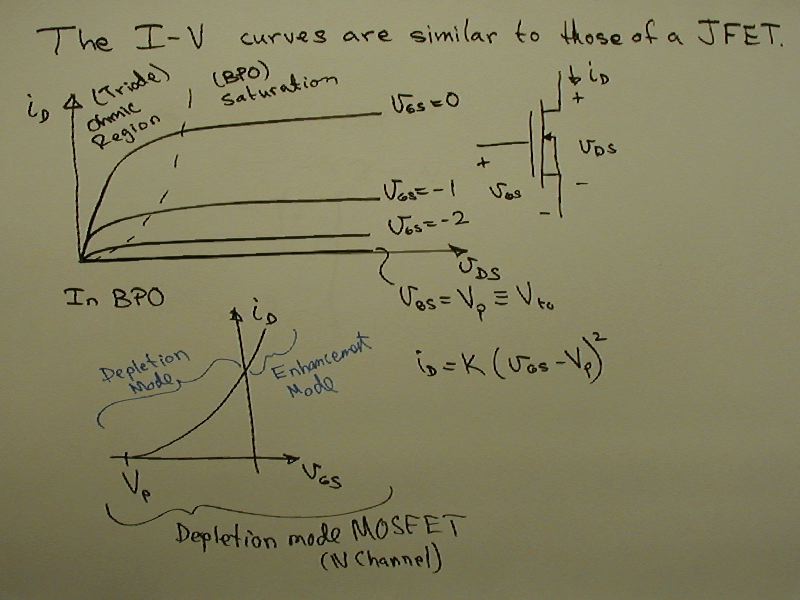 The I-V curves are similar to those of a JFET.
iD
(Triode)
Ohmic
Region
(BPO)
Saturation
vGS=0
vGS=-1
vGS=-2
vDS
vGS = Vp ≡ Vto
iD
+
vDS
-
+
vGS
-
In BPO
iD
Depletion
Mode
Enhancement
Mode
Vp
vGS
iD = K (vGS - Vp)²
Depletion mode MOSFET
(N Channel)